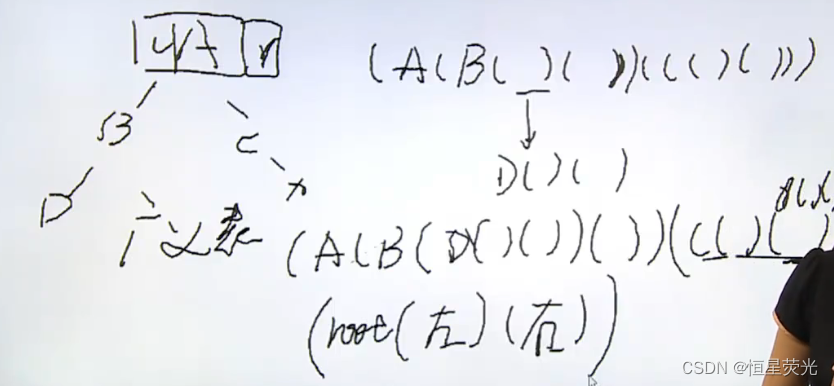 (A(B( )( ))(C( )( )))
B
C
D( )( )
D
广义表
(A(B(D( )( ))( ))(C( )(
(root(左)(右))
CSDN @恒星荧光